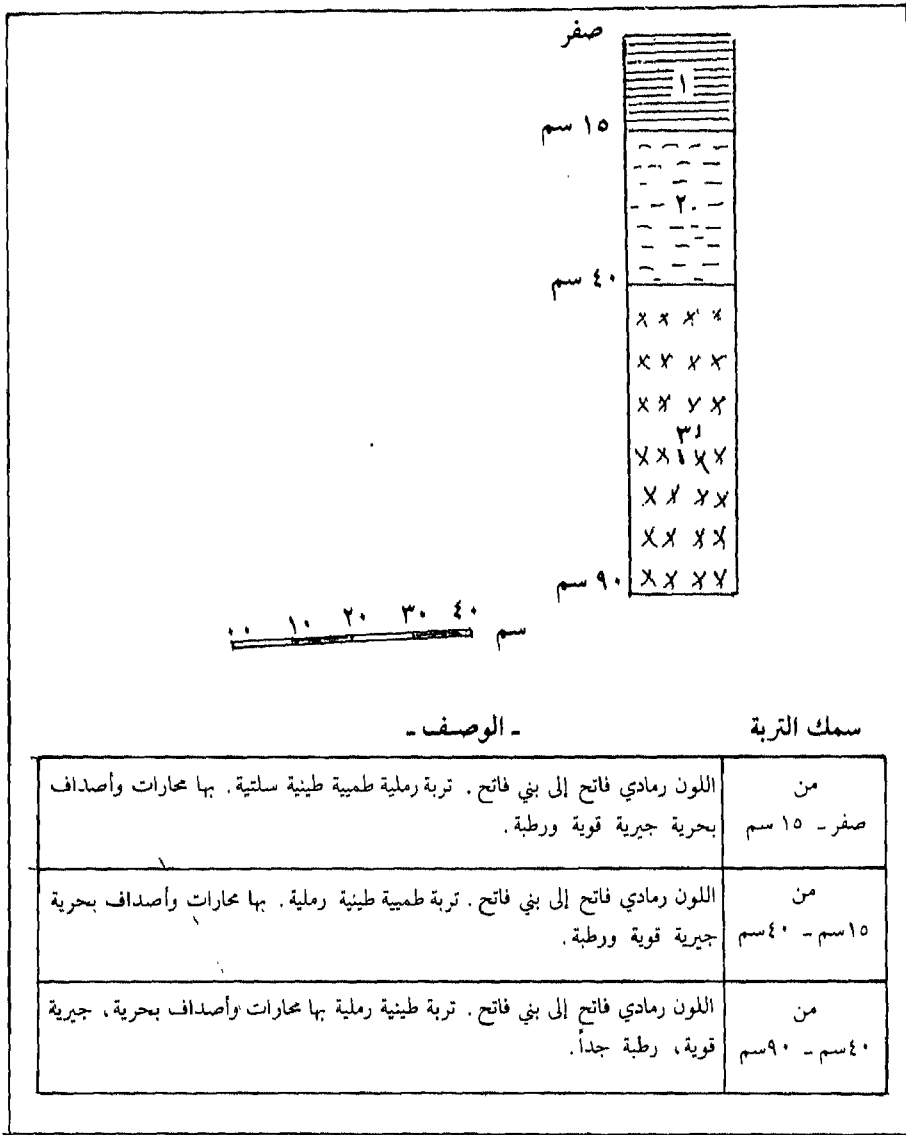 صفر
١
١٥ سم
٢٠
٤٠ سم
٣
٩٠ سم
٠٠ ١٠ ٢٠ ٣٠ ٤٠ سم
سمك التربة
ـ الوصف ـ
من
صفر ـ ١٥ سم
اللون رمادي فاتح إلى بني فاتح . تربة رملية طميية طينية سلتية . بها محارات وأصداف
بحرية جيرية قوية ورطبة .
من
١٥سم ـ ٤٠سم
اللون رمادي فاتح إلى بني فاتح . تربة طميية طينية رملية . بها محارات وأصداف بحرية
جيرية قوية ورطبة .
من
٤٠سم ـ ٩٠سم
اللون رمادي فاتح إلى بني فاتح . تربة طينية رملية بها محارات وأصداف بحرية ، جيرية
قوية ، رطبة جداً .